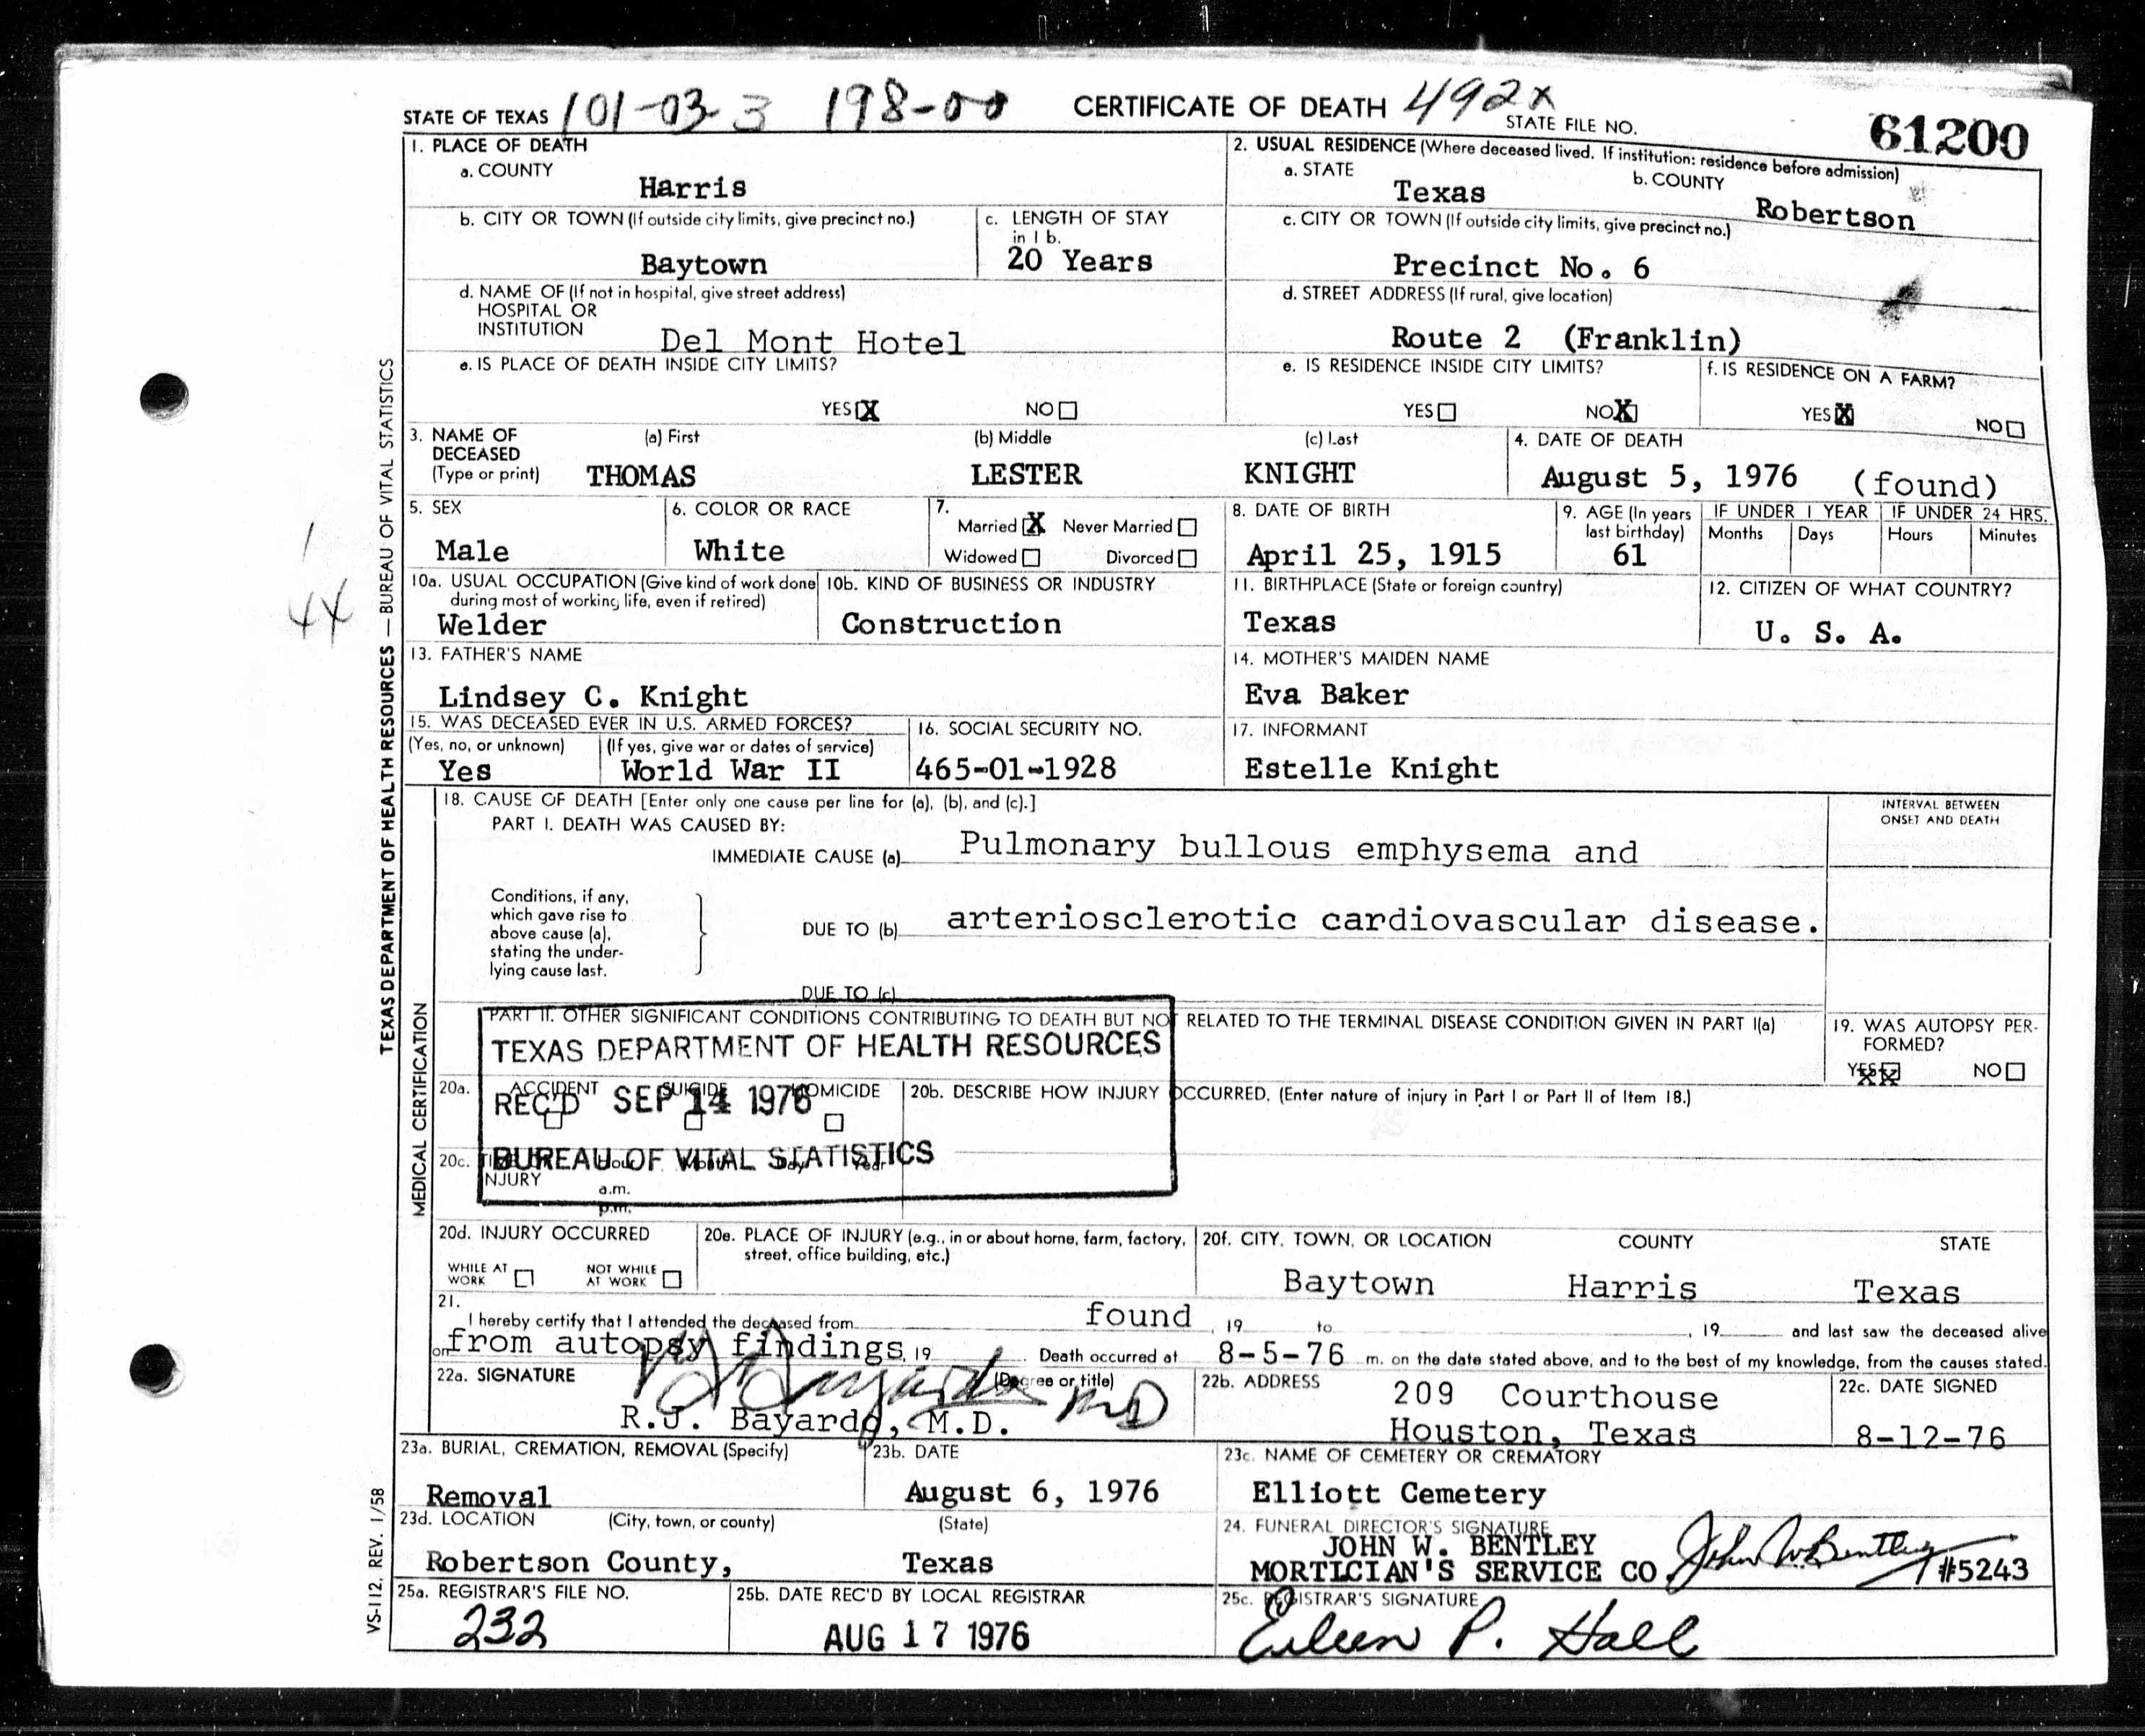 STATE OF TEXAS 101-03-3 198-00 CERTIFICATE OF DEATH 492x STATE FILE NO. 61200
1. PLACE OF DEATH
a. COUNTY
Harris
2. USUAL RESIDENCE (Where deceased lived. If institution: residence before admission)
a. STATE
Texas
b. COUNTY
Robertson
b. CITY OR TOWN (If outside city limits, give precinct no.)
Baytown
c. LENGTH OF STAY
in 1 b.
20 Years
c. CITY OR TOWN (If outside city limits, give precinct no.)
Precinct No. 6
d. NAME OF (If not in hospital, give street address)
HOSPITAL OR
INSTITUTION
Del Mont Hotel
d. STREET ADDRESS (If rural, give location)
Route 2 (Franklin)
e. IS PLACE OF DEATH INSIDE CITY LIMITS?
YES X NO
e. IS RESIDENCE INSIDE CITY LIMITS?
YES NO X
f. IS RESIDENCE ON A FARM?
YES X NO
3. NAME OF
DECEASED
(Type or print)
(a) First
THOMAS
(b) Middle
LESTER
(c) Last
KNIGHT
4. DATE OF DEATH
August 5, 1976 (found)
5. SEX
Male
6. COLOR OR RACE
White
7.
Married X Never Married
Widowed Divorced
8. DATE OF BIRTH
April 25, 1915
9. AGE (In years
last birthday)
61
IF UNDER 1 YEAR
Months Days
IF UNDER 24 HRS.
Hours Minutes
10a. USUAL OCCUPATION (Give kind of work done
during most of working life, even if retired)
Welder
10b. KIND OF BUSINESS OR INDUSTRY
Construction
11. BIRTHPLACE (State or foreign country)
Texas
12. CITIZEN OF WHAT COUNTRY?
U. S. A.
13. FATHER'S NAME
Lindsey C. Knight
14. MOTHER'S MAIDEN NAME
Eva Baker
15. WAS DECEASED EVER IN U.S. ARMED FORCES?
(Yes, no, or unknown)
Yes
(If yes, give war or dates of service)
World War II
16. SOCIAL SECURITY NO.
465-01-1928
17. INFORMANT
Estelle Knight
18. CAUSE OF DEATH [Enter only one cause per line for (a), (b), and (c).]
PART I. DEATH WAS CAUSED BY:
IMMEDIATE CAUSE (a) Pulmonary bullous emphysema and
INTERVAL BETWEEN
ONSET AND DEATH
Conditions, if any,
which gave rise to
above cause (a),
stating the under-
lying cause last.
DUE TO (b) arteriosclerotic cardiovascular disease.
DUE TO (c)
PART II. OTHER SIGNIFICANT CONDITIONS CONTRIBUTING TO DEATH BUT NOT RELATED TO THE TERMINAL DISEASE CONDITION GIVEN IN PART I(a)
19. WAS AUTOPSY PER-
FORMED?
YES XX NO
TEXAS DEPARTMENT OF HEALTH RESOURCES
REC'D SEP 14 1976
BUREAU OF VITAL STATISTICS
20a. ACCIDENT SUICIDE HOMICIDE
20b. DESCRIBE HOW INJURY OCCURRED. (Enter nature of injury in Part I or Part II of Item 18.)
20c.
INJURY
Hour Month Day Year
a.m.
p.m.
20d. INJURY OCCURRED
WHILE AT
WORK
NOT WHILE
AT WORK
20e. PLACE OF INJURY (e.g., in or about home, farm, factory,
street, office building, etc.)
20f. CITY, TOWN, OR LOCATION COUNTY STATE
Baytown Harris Texas
21.
I hereby certify that I attended the deceased from found, 19 to , 19 and last saw the deceased alive
on from autopsy findings, 19 . Death occurred at 8-5-76 m. on the date stated above, and to the best of my knowledge, from the causes stated.
22a. SIGNATURE (Degree or title)
MD
R.J. Bayardo, M.D.
22b. ADDRESS
209 Courthouse
Houston, Texas
22c. DATE SIGNED
8-12-76
23a. BURIAL, CREMATION, REMOVAL (Specify)
Removal
23b. DATE
August 6, 1976
23c. NAME OF CEMETERY OR CREMATORY
Elliott Cemetery
23d. LOCATION (City, town, or county) (State)
Robertson County, Texas
24. FUNERAL DIRECTOR'S SIGNATURE
JOHN W. BENTLEY
MORTICIAN'S SERVICE CO John W. Bentley #5243
25a. REGISTRAR'S FILE NO.
232
25b. DATE REC'D BY LOCAL REGISTRAR
AUG 17 1976
25c. REGISTRAR'S SIGNATURE
Eileen P. Hall
TEXAS DEPARTMENT OF HEALTH RESOURCES — BUREAU OF VITAL STATISTICS
MEDICAL CERTIFICATION
VS-112, REV. 1/58
1
44